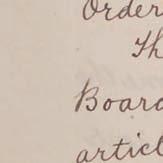 Order
Th
Board
articl